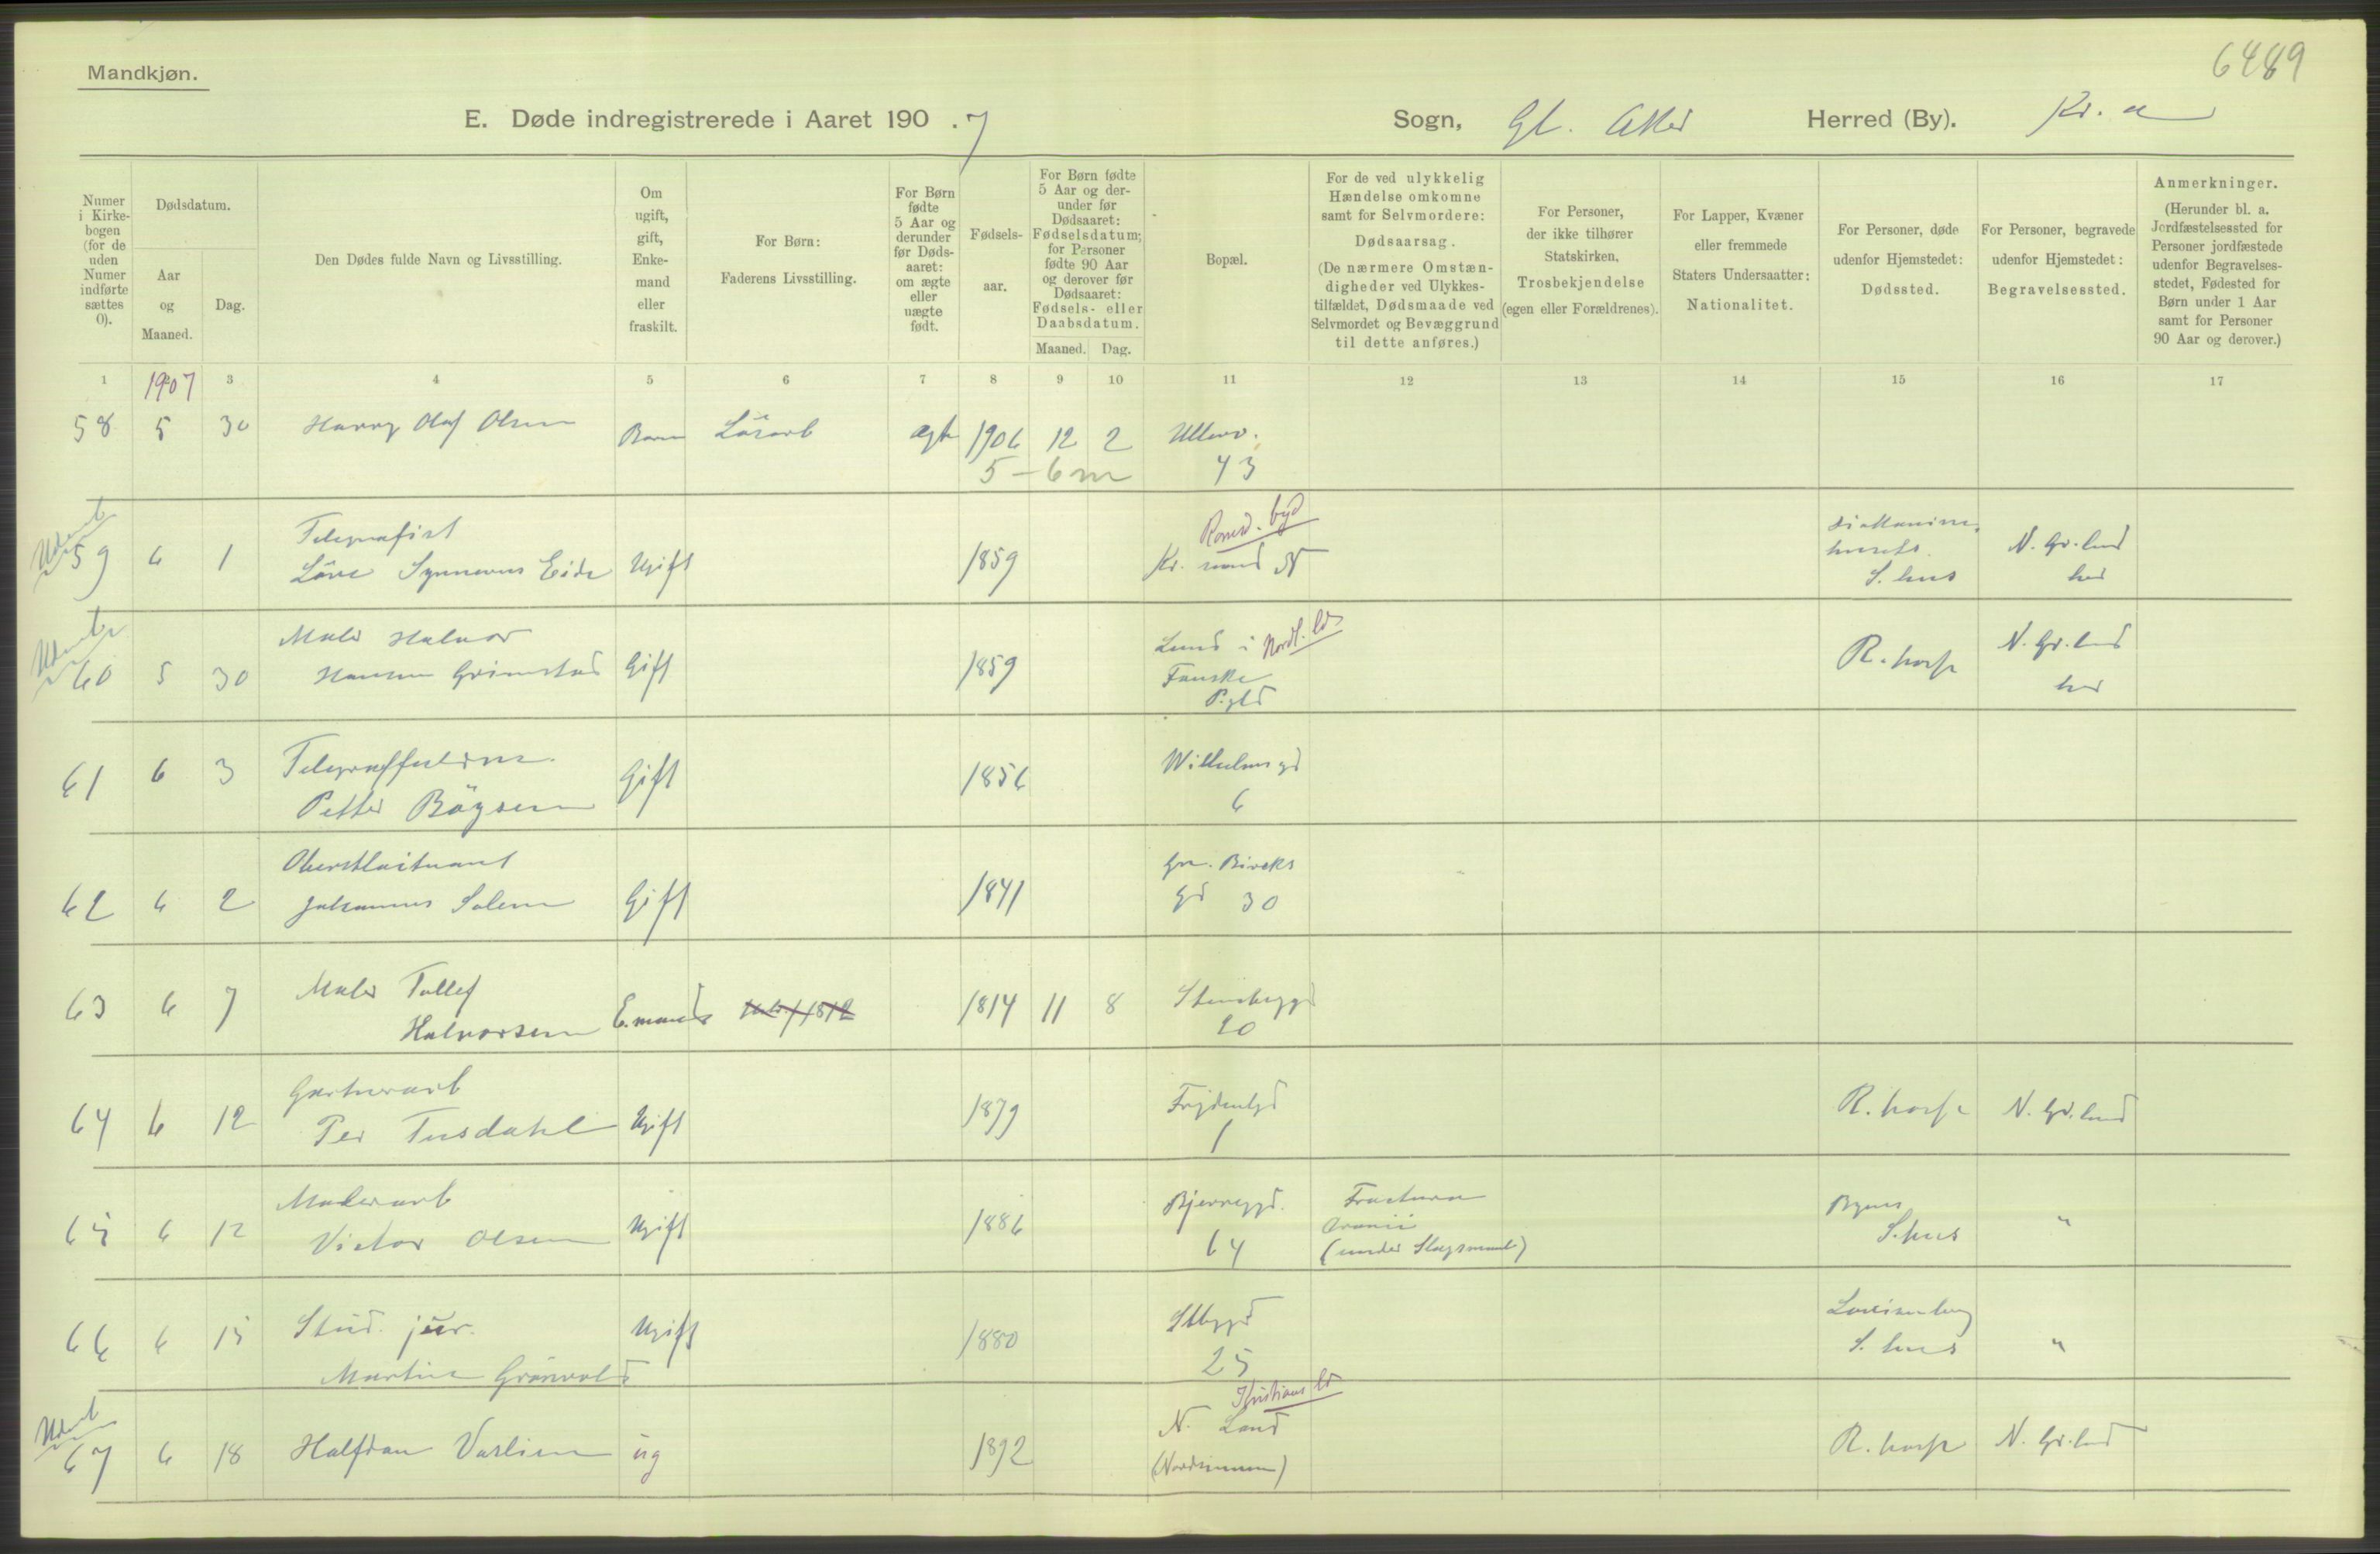 6489
Mandkjøn.
E. Døde indregistrerede i Aaret 190 . 7 Sogn, Gl. Aker Herred (By). Kr. a
Numer i Kirkebogen (for de uden Numer indførte sættes 0).
Dødsdatum.
Aar og Maaned.
Dag.
Den Dødes fulde Navn og Livsstilling.
Om ugift, gift, Enkemand eller fraskilt.
For Børn:
Faderens Livsstilling.
For Børn fødte 5 Aar og derunder før Dødsaaret: om ægte eller uægte født.
Fødselsaar.
For Børn fødte 5 Aar og derunder før Dødsaaret: Fødselsdatum; for Personer fødte 90 Aar og derover før Dødsaaret: Fødsels- eller Daabsdatum.
Maaned. Dag.
Bopæl.
For de ved ulykkelig Hændelse omkomne samt for Selvmordere:
Dødsaarsag.
(De nærmere Omstændigheder ved Ulykkestilfældet, Dødsmaade ved Selvmordet og Bevæggrund til dette anføres.)
For Personer, der ikke tilhører Statskirken.
Trosbekjendelse
(egen eller Forældrenes).
For Lapper, Kvæner eller fremmede Staters Undersaatter:
Nationalitet.
For Personer, døde udenfor Hjemstedet:
Dødssted.
For Personer, begravede udenfor Hjemstedet:
Begravelsessted.
Anmerkninger.
(Herunder bl. a. Jordfæstelsessted for Personer jordfæstede udenfor Begravelsesstedet, Fødested for Børn under 1 Aar samt for Personer 90 Aar og derover.)
1 1907 3 4 5 6 7 8 9 10 11 12 13 14 15 16 17
58 5 30 Harry Olaf Olsen Barn Løsarb ægte 1906 12 2 Ullevv.
5-6 m 43
Udenb
Telegrafist Romsd. byd
59 6 1 Synnevus Eide Ugift 1859 Kr. sund N S. hus N. Gr. lund
her
Udenby
Maler Halvor Lund i Nordl. ld N. Gr. lund
60 5 30 Hansen Grimstad Gift 1859 Fauske R. hosp her
P.gld
Petter Bøgsen
61 6 3 Gift 1856 Wilhelmsgd
6
Oberstløitnant Gen. Bircks
62 6 2 Johannes Solem Gift 1841 gd 30
Maler Tollef
63 6 7 Halvorsen E.mand 1814 11 8 Stensbergd
20
Gartnerarb
64 6 12 Per Tusdahl Ugift 1879 Frydenlgd R. hosp N. Gr. lund
1
Malerarb Bjerreggd. Fractura
65 6 12 Victor Olsen Ugift 1886 64 cranii
(under Slagsmaal) Byens S.hus "
66 6 15 Stud. jur. Ugift 1880 Stbggd Lovisenberg
Martin Grønvold 25 S. hus "
Udenb
Kristians ld
67 6 18 Halfdan Varlien ug 1892 N. Land R. hosp N. Gr. lund
(Nordsinnen)